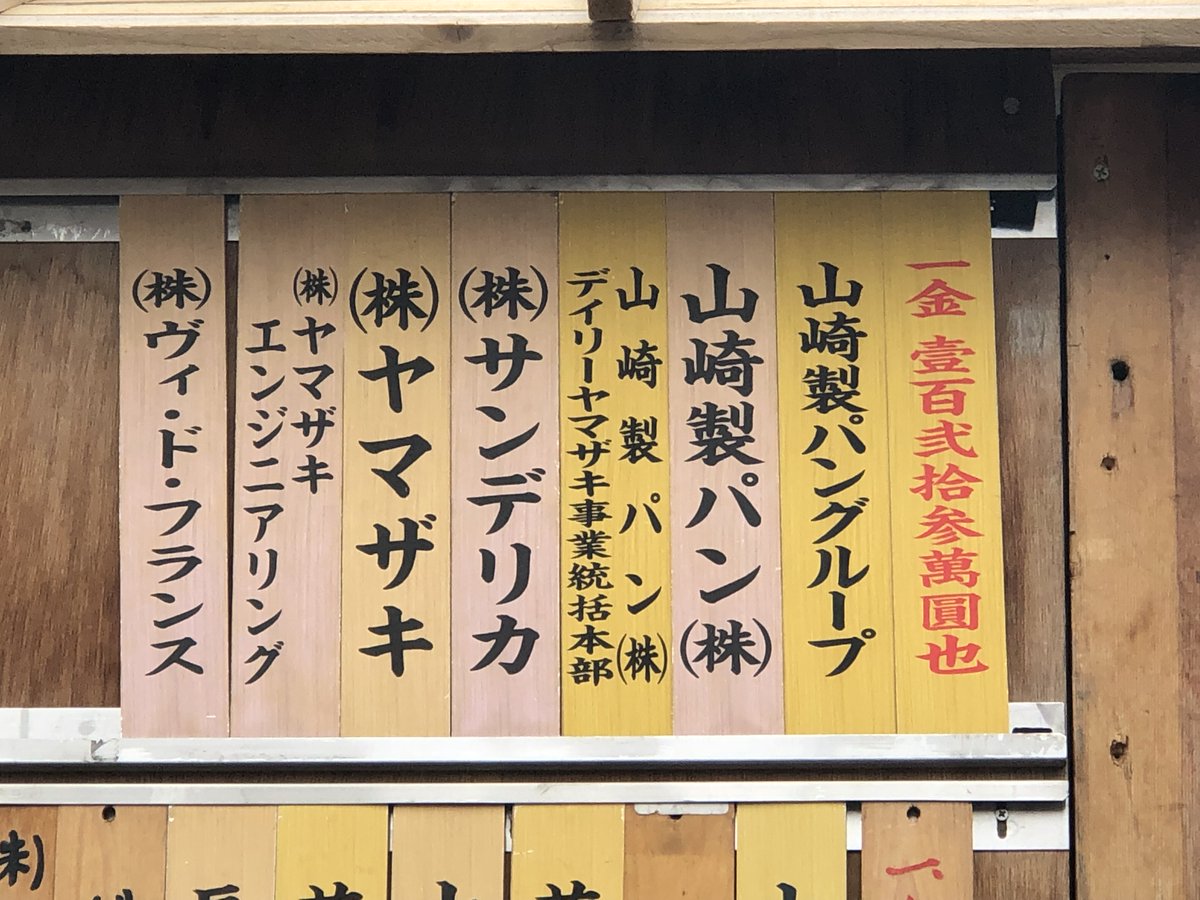 一金壹百弐拾参萬圓也
山崎製パングループ
山崎製パン(株)
山崎製パン(株)
デイリーヤマザキ事業統括本部
(株)サンデリカ
(株)ヤマザキ
(株)ヤマザキ
エンジニアリング
(株)ヴィ・ド・フランス